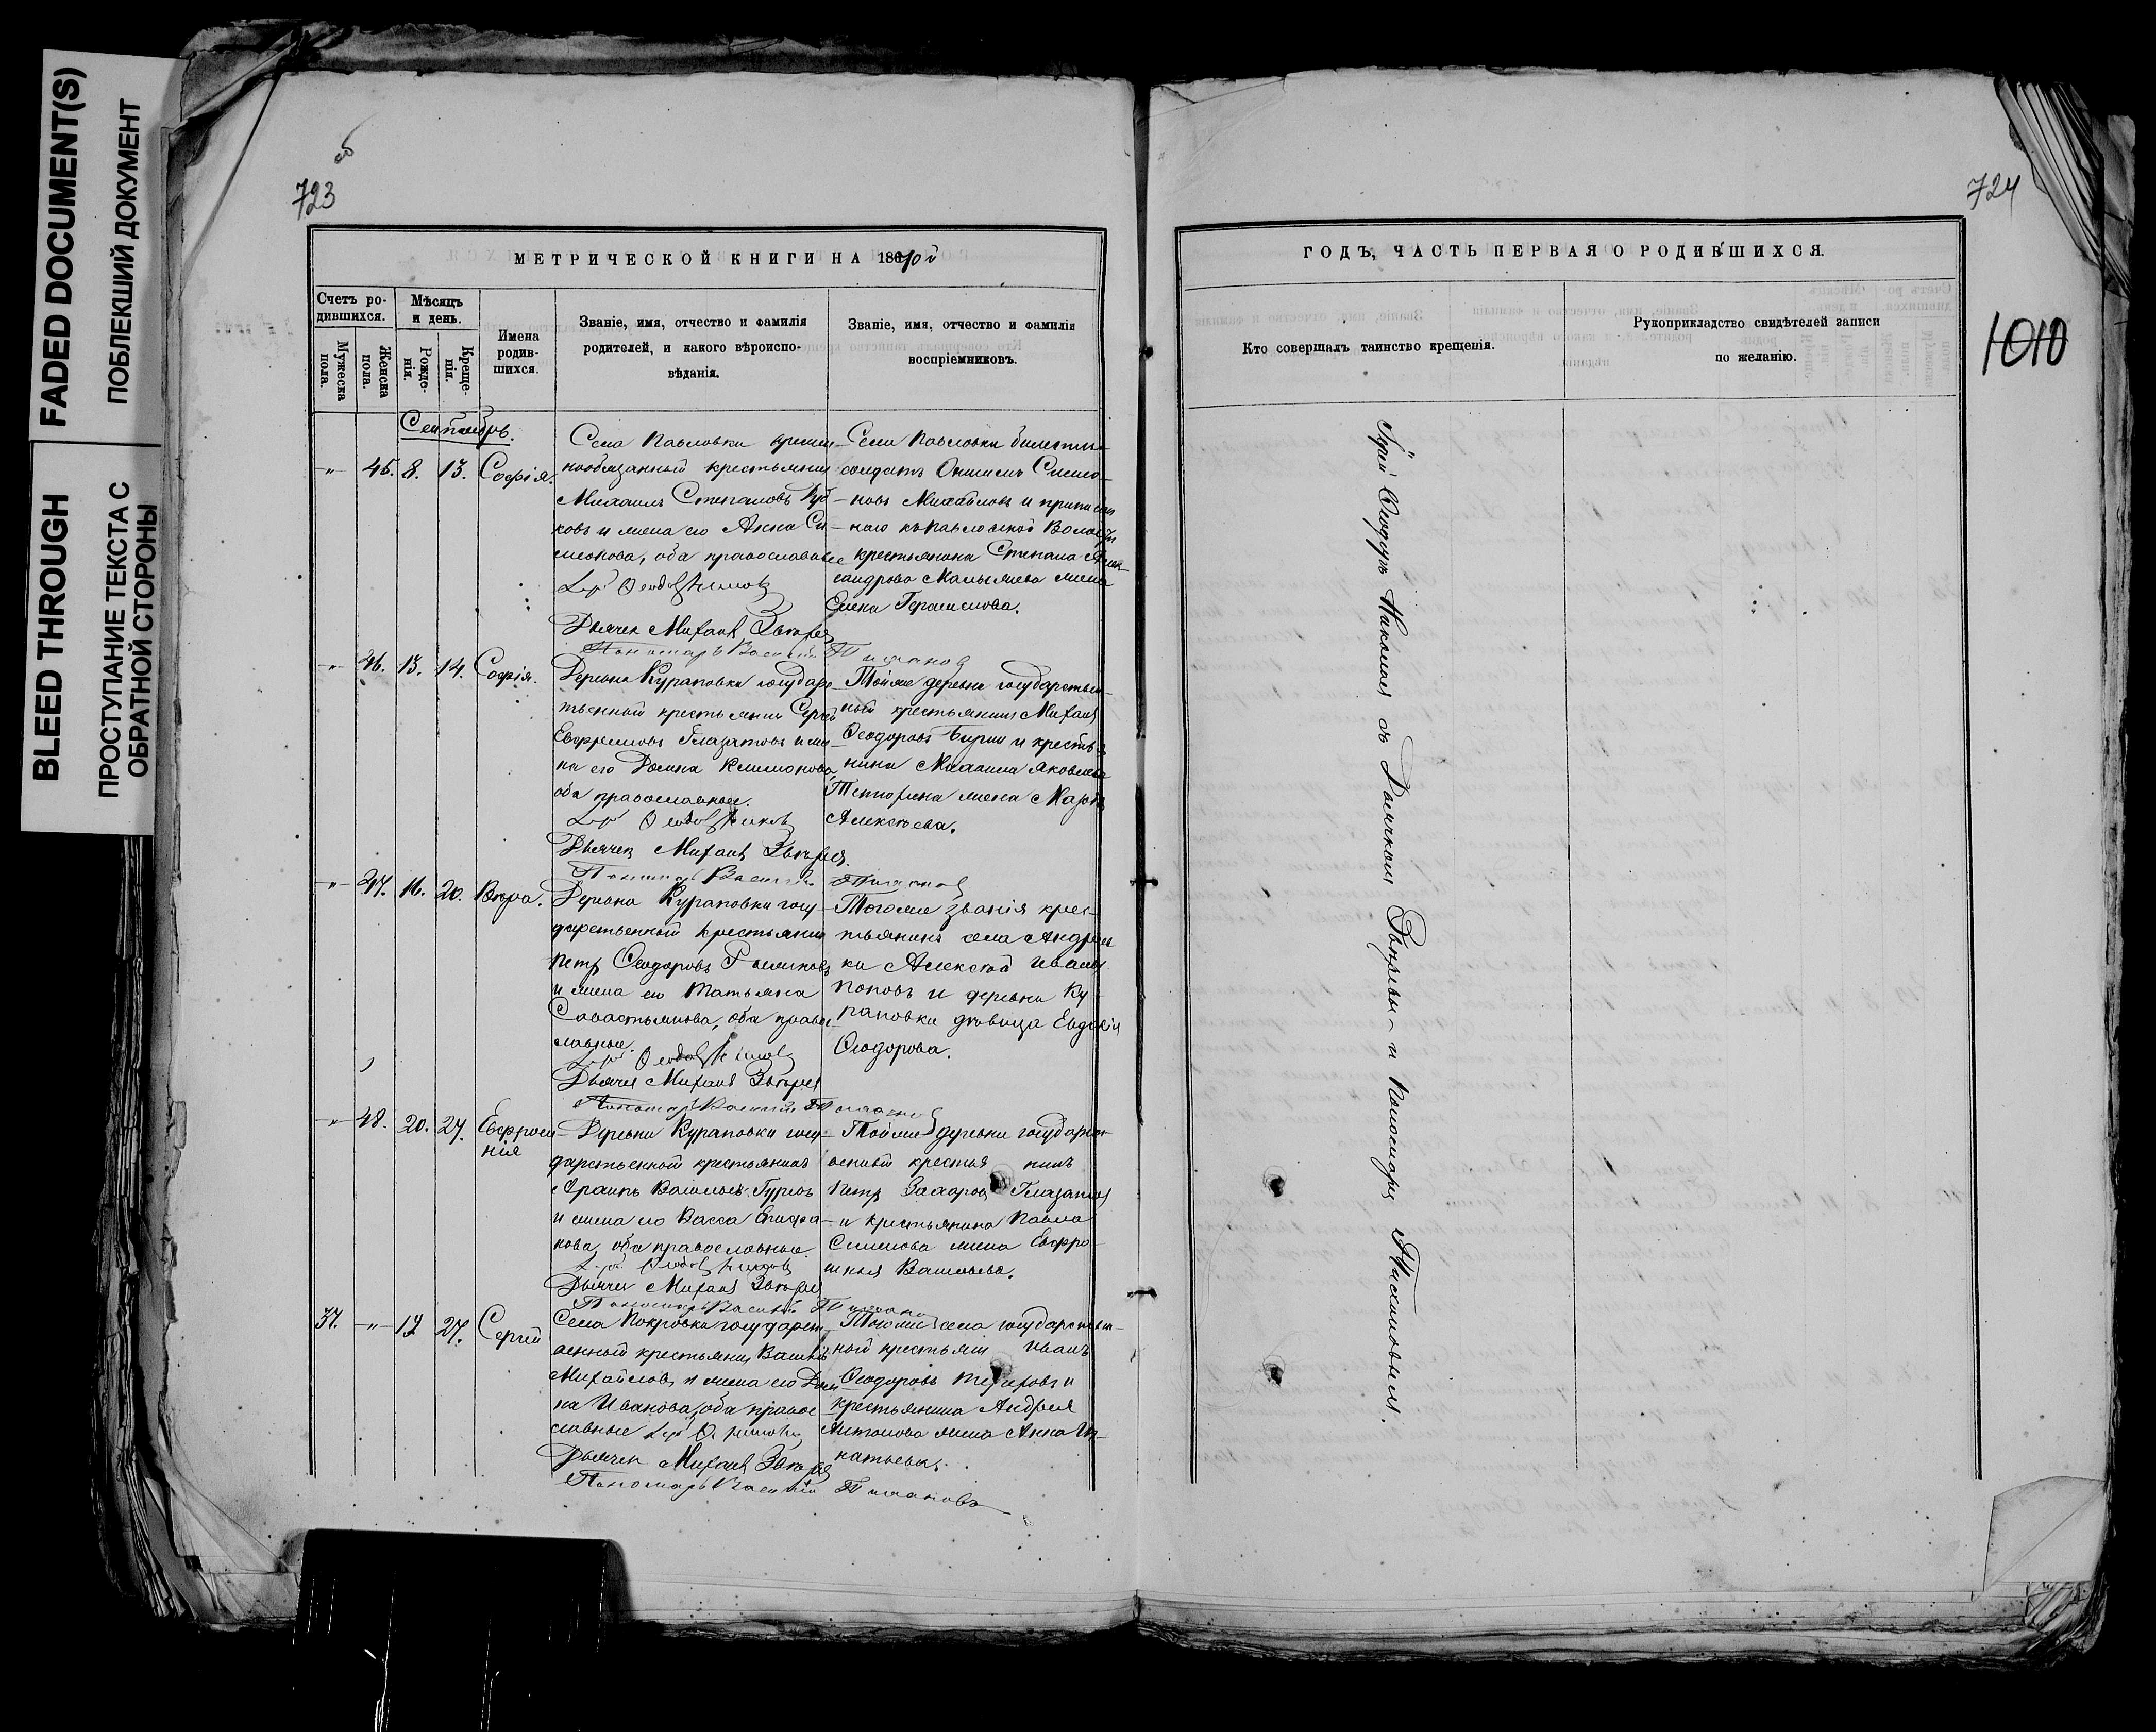 FADED DOCUMENT(S)
ПОБЛЕКШИЙ ДОКУМЕНТ
BLEED THROUGH
ПРОСТУПАНИЕ ТЕКСТА С
ОБРАТНОЙ СТОРОНЫ
об
723
МЕТРИЧЕСКОЙ КНИГИ НА 1870й
Счетъ ро-
дившихся.
Мужеска
пола.
Женска
пола.
Мѣсяцъ
и день.
Рожде-
нія.
Креще-
нія.
Имена
родив-
шихся.
Званіе, имя, отчество и фамилія
родителей, и какого вѣроиспо-
вѣданія.
Званіе, имя, отчество и фамилія
воспріемниковъ.
Сентябрь.
-"- 45. 8. 13. Софія.
Села Павловки времен-
нообязанный крестьянинъ
Михаилъ Степановъ
ковъ и жена его Анна Си-
меонова, оба православные
Дьячек Михаил Зверев
Пономарь Василий
Села Павловки билетный
солдатъ Онисимъ Симео-
новъ Михайловъ и приписан
наго къ Павловской Волости
крестьянина Степана Алек-
сандрова жена
Елена Герасимова.
-"- 46. 13. 14. Софія.
Деревни Кураповки государс
твенный крестьянинъ Сергей
Евфремовъ Глазатовъ и же-
на его Домна
оба православные.
Дьячек Михаил Зверев.
Пономарь Василий
Тойже деревни государствен-
ный крестьянинъ Михаил
Ѳеодоровъ и крестья
нина Михаила Яковлева
жена Марѳа
Алексѣева.
-"- 47. 16. 20. Вѣра.
Деревни Кураповки госу-
дарственный крестьянинъ
Петр Ѳеодоровъ
и жена его Татьяна
Савастьянова, оба право-
славные.
Дьячек Михаил Зверев
Пономарь Василий
Тогоже званія крес-
тьянинъ села Андреев
ки Алексѣй Иванов
Поповъ и деревни Ку-
раповки дѣвица Евдокія
Ѳеодорова.
-"- 48. 20. 27. Евфроси-
нія
Деревни Кураповки госу-
дарственный крестьянинъ
Васильевъ Гурьев
и жена его Васса Епифа-
нова, оба православные.
Дьячек Михаил Зверев
Пономарь Василий
Тойже деревни государст-
венный крестьянинъ
Петр Захаров Глазатов
и крестьянина Павла
Симеонова жена Евфро-
синья Васильева.
37. -"- 17 27. Сергей
Села Покровки государст-
венный крестьянин Василий
Михайловъ и жена его Дом-
на Иванова, оба правос-
славные
Дьячек Михаил Зверев
Пономарь Василий
Тогоже села государствен-
ный крестьянин Иванъ
Ѳеодоровъ и
крестьянина Андрея
Антонова жена Анна Иг-
натьева.
724
1010
ГОДЪ, ЧАСТЬ ПЕРВАЯ О РОДИВШИХСЯ.
Кто совершалъ таинство крещенія.
Рукоприкладство свидѣтелей записи
по желанію.
Іерей Ѳеодоръ съ Дьячком Зверевым и Пономаремъ